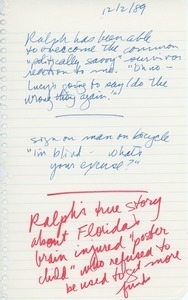 12/2/89
Ralph has been able
to overcome the common
"politically savvy" survivor
reaction to me. "Oh no -
Lucy's going to say/do the
wrong thing again."
sign on man on bicycle
"I'm blind - what's
your excuse?"
Ralph's true story
about Florida's
brain injured "poster
child" who refused to
be used to get more
funds